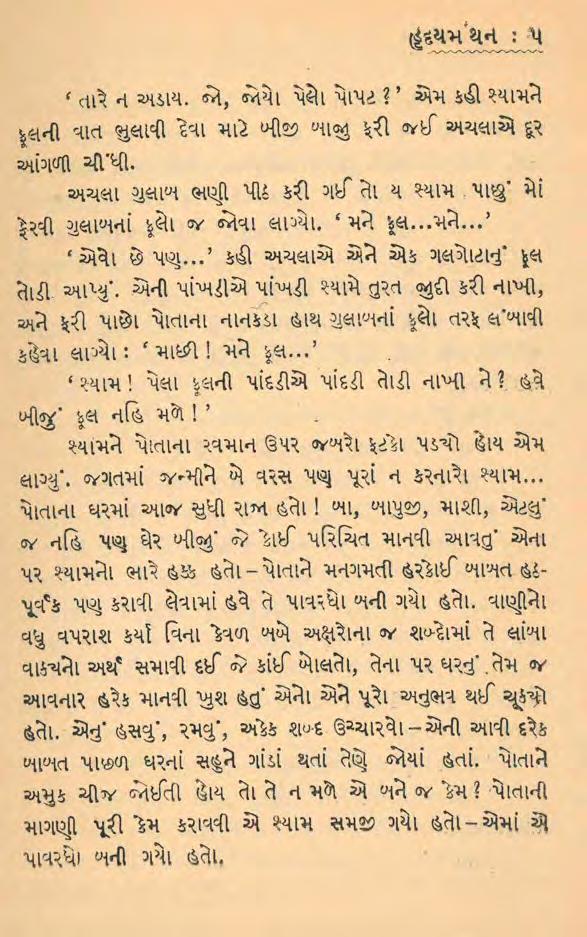 હૃદયમંથન : ૫
‘ તારે ન અડાય. જો, જોયો પેલો પોપટ ? ’ એમ કહી શ્યામને
ફૂલની વાત ભુલાવી દેવા માટે બીજી બાજુ ફરી જઈ અચલાએ દૂર
આંગળી ચીંધી.
અચલા ગુલાબ ભણી પીઠ કરી ગઈ તો ય શ્યામ પાછું મોં
ફેરવી ગુલાબનાં ફૂલો જ જોવા લાગ્યો. ‘ મને ફૂલ...મને...’
‘ એવો છે પણ...’ કહી અચલાએ એને એક ગલગોટાનું ફૂલ
તોડી આપ્યું. એની પાંખડીએ પાંખડી શ્યામે તુરત જુદી કરી નાખી,
અને ફરી પાછો પોતાના નાનકડા હાથ ગુલાબનાં ફૂલો તરફ લંબાવી
કહેવા લાગ્યો : ‘ માછી ! મને ફૂલ...’
‘ શ્યામ ! પેલા ફૂલની પાંદડીએ પાંદડી તોડી નાખી ને ? હવે
બીજું ફૂલ નહિ મળે ! ’
શ્યામને પોતાના સ્વમાન ઉપર જબરો ફટકો પડ્યો હોય એમ
લાગ્યું. જગતમાં જન્મીને બે વરસ પણ પૂરાં ન કરનારો શ્યામ...
પોતાના ઘરમાં આજ સુધી રાજા હતો ! બા, બાપુજી, માશી, એટલું
જ નહિ પણ ઘેર બીજું જે કોઈ પરિચિત માનવી આવતું એના
પર શ્યામનો ભારે હક્ક હતો – પોતાને મનગમતી હરકોઈ બાબત હઠ-
પૂર્વક પણ કરાવી લેવામાં હવે તે પાવરધો બની ગયો હતો. વાણીનો
વધુ વપરાશ કર્યા વિના કેવળ બબે અક્ષરોના જ શબ્દોમાં તે લાંબા
વાક્યનો અર્થ સમાવી દઈ જે કાંઈ બોલતો, તેના પર ઘરનું તેમ જ
આવનાર હરેક માનવી ખુશ હતું એનો એને પૂરો અનુભવ થઈ ચૂક્યો
હતો. એનું હસવું, રમવું, અકેક શબ્દ ઉચ્ચારવો – એની આવી દરેક
બાબત પાછળ ઘરનાં સહુને ગાંડાં થતાં તેણે જોયાં હતાં. પોતાને
અમુક ચીજ જોઈતી હોય તો તે ન મળે એ બને જ કેમ ? પોતાની
માગણી પૂરી કેમ કરાવવી એ શ્યામ સમજી ગયો હતો – એમાં એ
પાવરધો બની ગયો હતો.